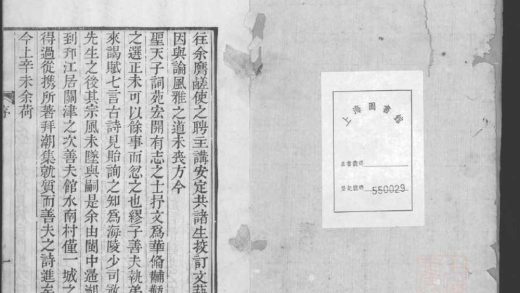 往余膺鹺使之聘主講安定共諸生校訂文
因與論風雅之道未喪方今
聖天子詞苑宏開有志之士抒文為華脩黼
之選正未可以餘事而忽之也繆子善夫執弟
來謁賦七言古詩見貽詢之知為海陵少司
先生之後其宗風未墜與嗣是余由閩中還湖
到邗江居關津之次善夫館水南村僅一城之
得過從携所著拜潮集就質而善夫之詩進矣
今上辛未余荷
序
一
上海圖書館
索書號碼
登記號碼 550029